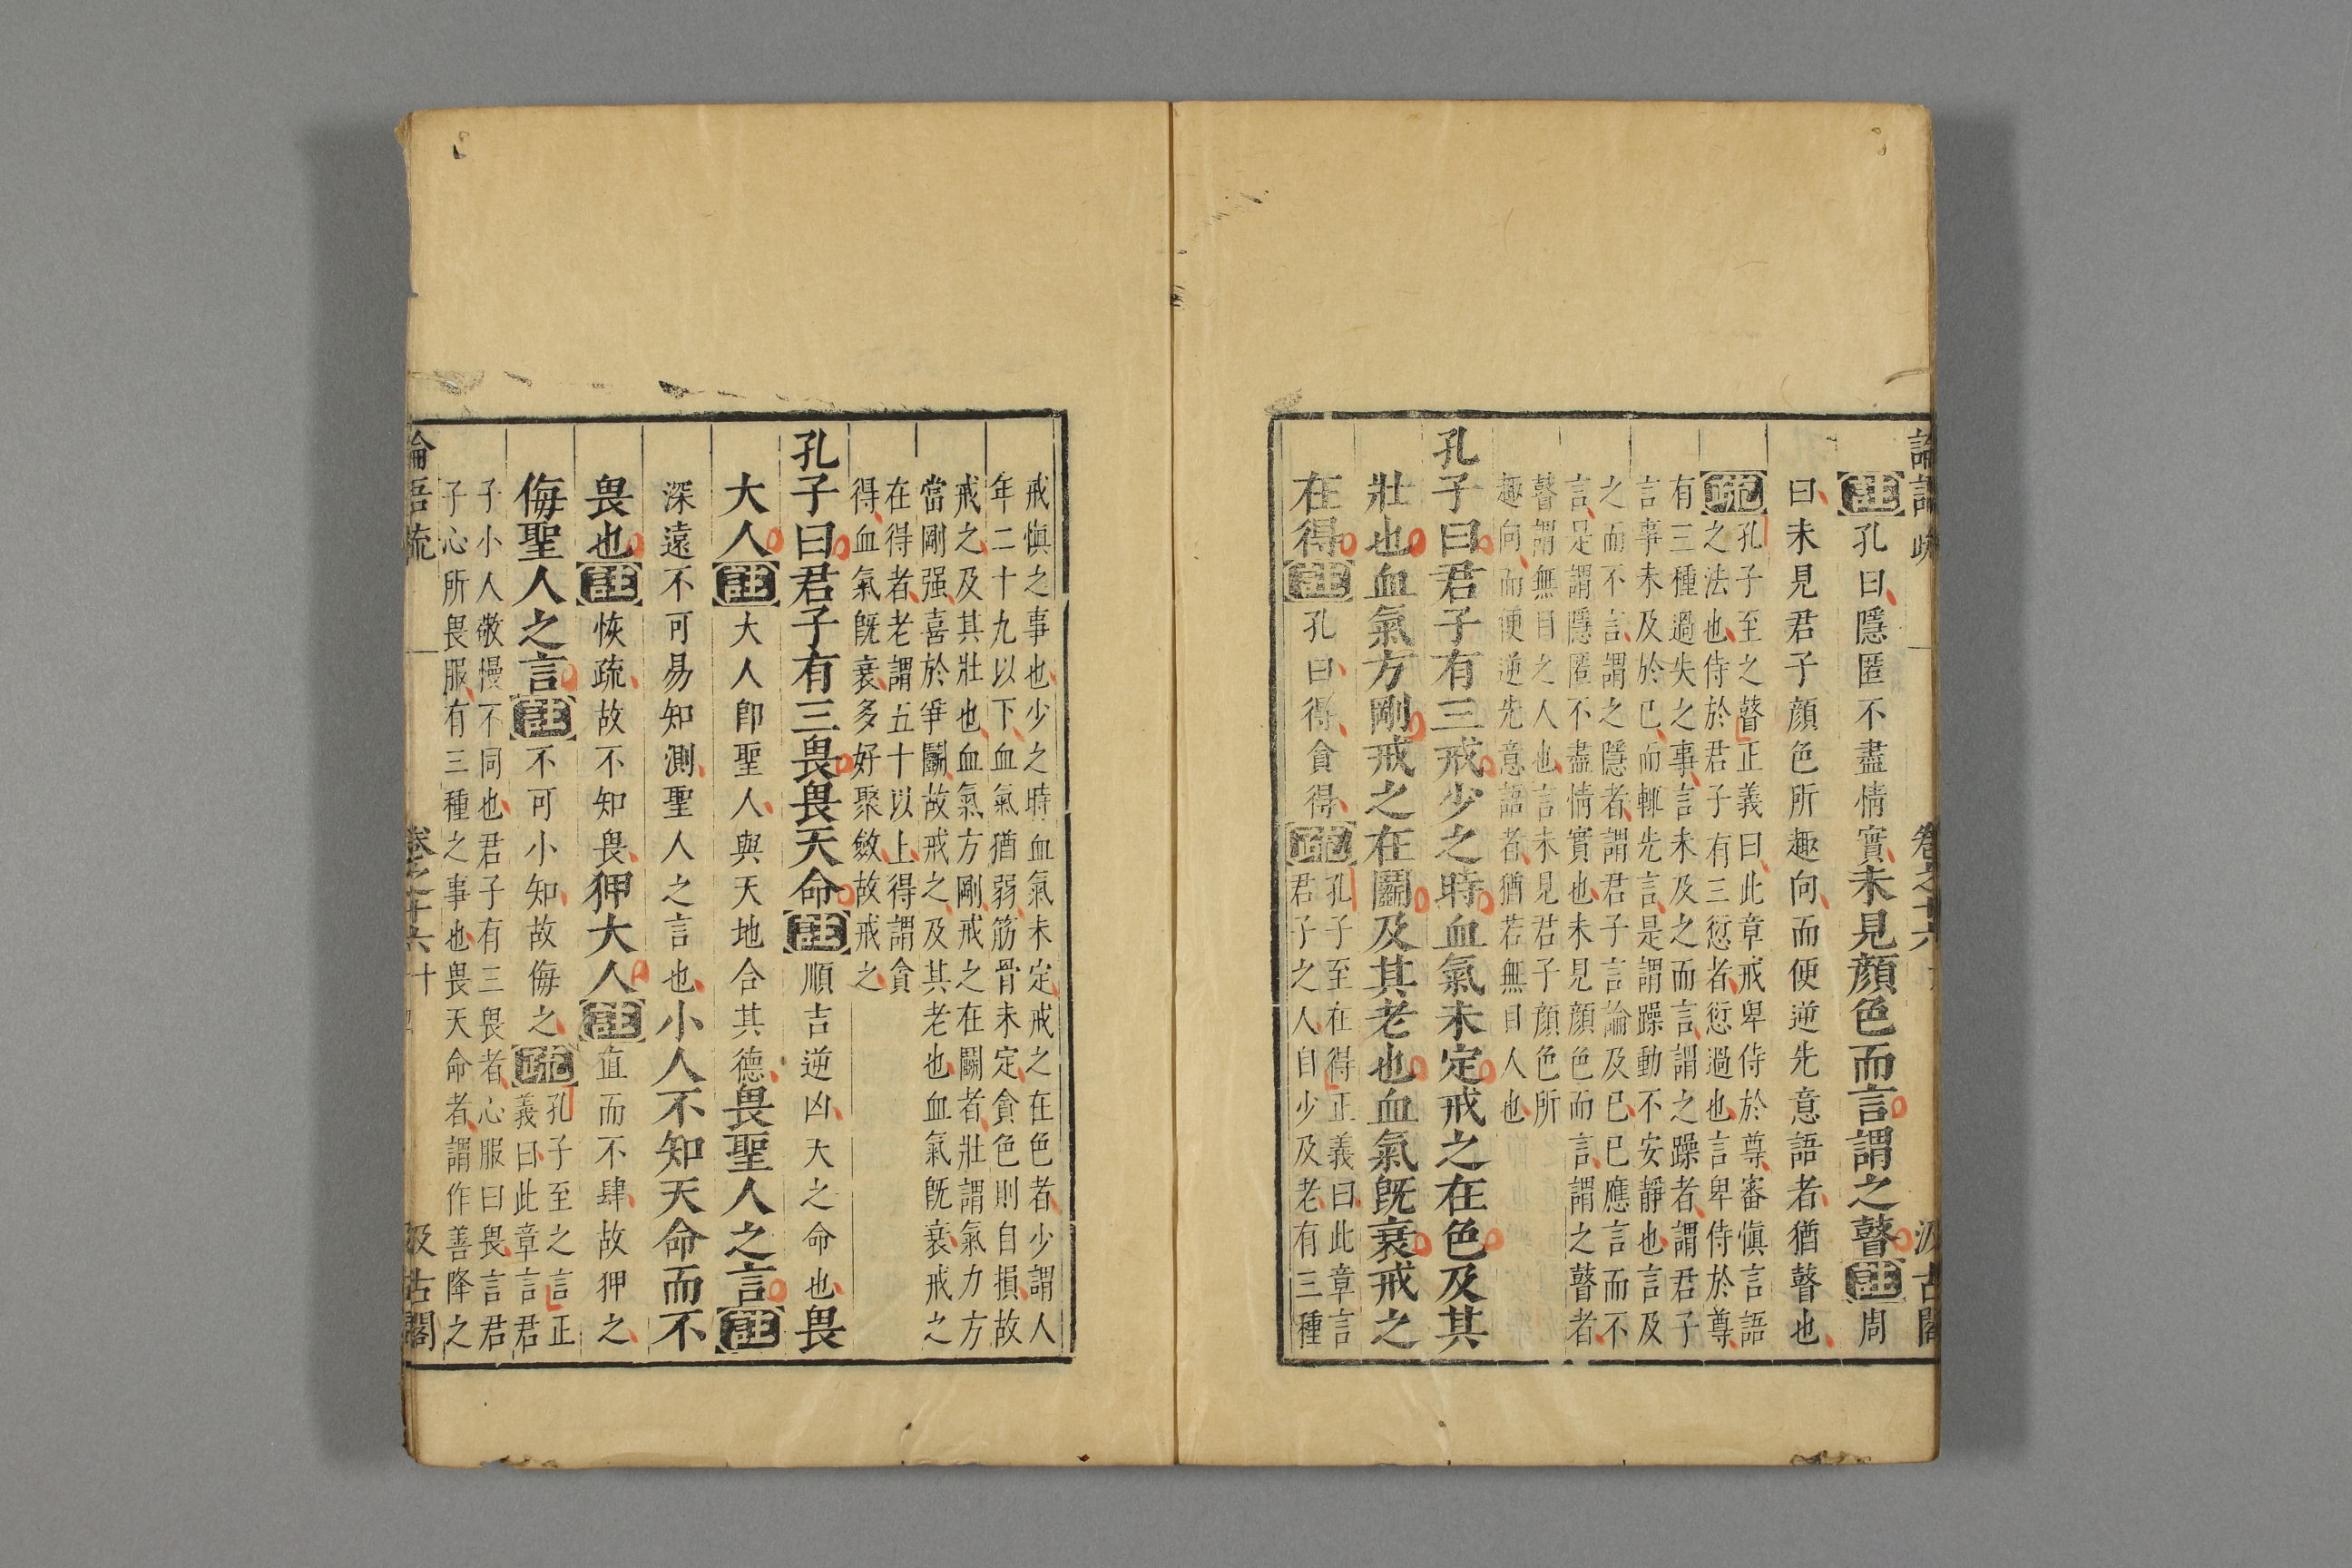 註孔曰隱匿不盡情實未見顏色而言謂之瞽註周
曰未見君子顏色所趣向而便逆先意語者猶瞽也
疏孔子至之瞽正義曰此章戒卑侍於尊審愼言語
之法也侍於君子有三愆者愆過也言卑侍於尊
有三種過失之事言未及之而言謂之躁者謂君子
言事未及於已而輒先言是謂躁動不安靜也言及
之而不言謂之隱者謂君子言論及已已應言而不
言足謂隱匿不盡情實也未見顏色而言謂之瞽者
瞽謂無目之人也言未見君子顏色所
趣向而便逆先意語者猶若無目人也
孔子曰君子有三戒少之時血氣未定戒之在色及其
壯也血氣方剛戒之在鬭及其老也血氣旣衰戒之
在得註孔曰得貪得疏孔子至在得正義曰此章言
君子之人自少及老有三種
論語疏
卷之十六
汲古閣
戒愼之事也少之時血氣未定戒之在色者少謂人
年二十九以下血氣猶弱筋骨未定貪色則自損故
戒之及其壯也血氣方剛戒之在鬭者壯謂氣力方
當剛强喜於爭鬭故戒之及其老也血氣旣衰戒之
在得者老謂五十以上得謂貪
得血氣旣衰多好聚斂故戒之
孔子曰君子有三畏畏天命註順吉逆凶大之命也畏
大人註大人卽聖人與天地合其德畏聖人之言註
深遠不可易知測聖人之言也小人不知天命而不
畏也註恢疏故不知畏狎大人註直而不肆故狎之
侮聖人之言註不可小知故侮之疏孔子至之言正
義曰此章言君
子小人敬慢不同也君子有三畏者心服曰畏言君
子心所畏服有三種之事也畏天命者謂作善降之
論語疏
卷之十六
十
汲古閣